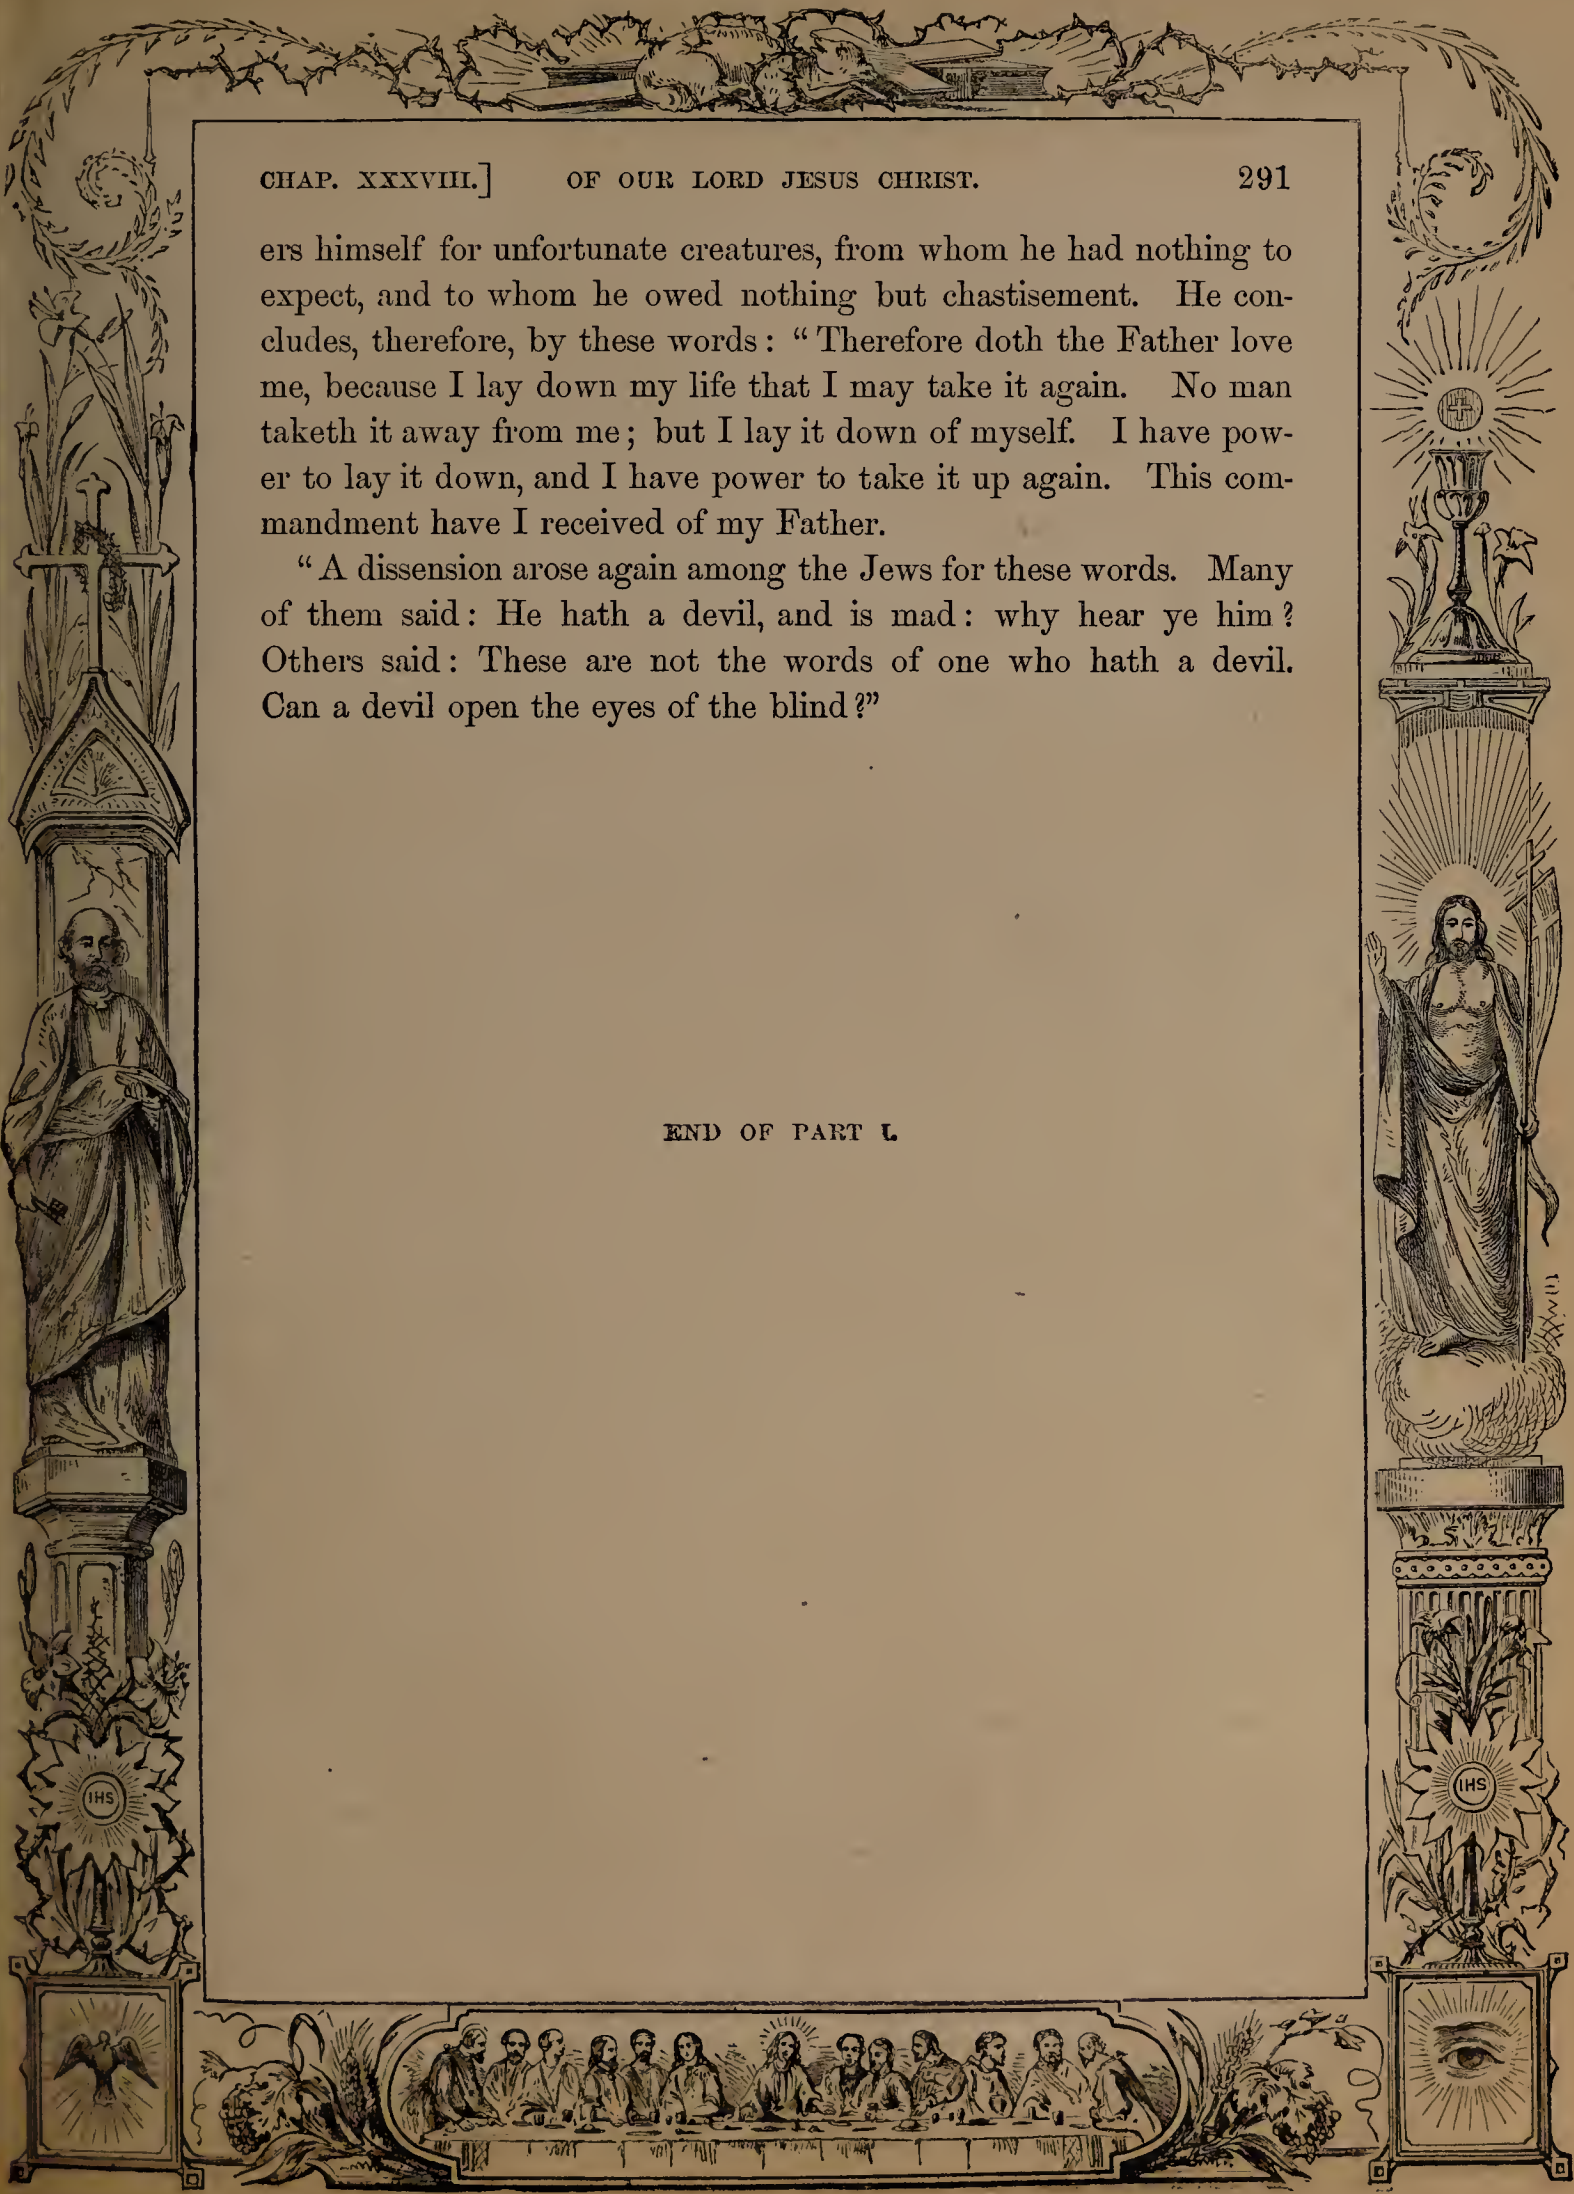 CHAP. XXXVIII.] OF OUR LORD JESUS CHRIST. 291
ers himself for unfortunate creatures, from whom he had nothing to
expect, and to whom he owed nothing but chastisement. He con-
cludes, therefore, by these words: “Therefore doth the Father love
me, because I lay down my life that I may take it again. No man
taketh it away from me; but I lay it down of myself. I have pow-
er to lay it down, and I have power to take it up again. This com-
mandment have I received of my Father.
“A dissension arose again among the Jews for these words. Many
of them said: He hath a devil, and is mad: why hear ye him?
Others said: These are not the words of one who hath a devil.
Can a devil open the eyes of the blind?”
END OF PART I.
IHS
IHS